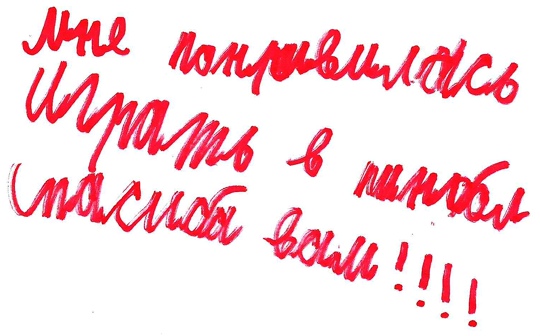 мне понравилась
играть в пинобл
спасиба вам!!!!